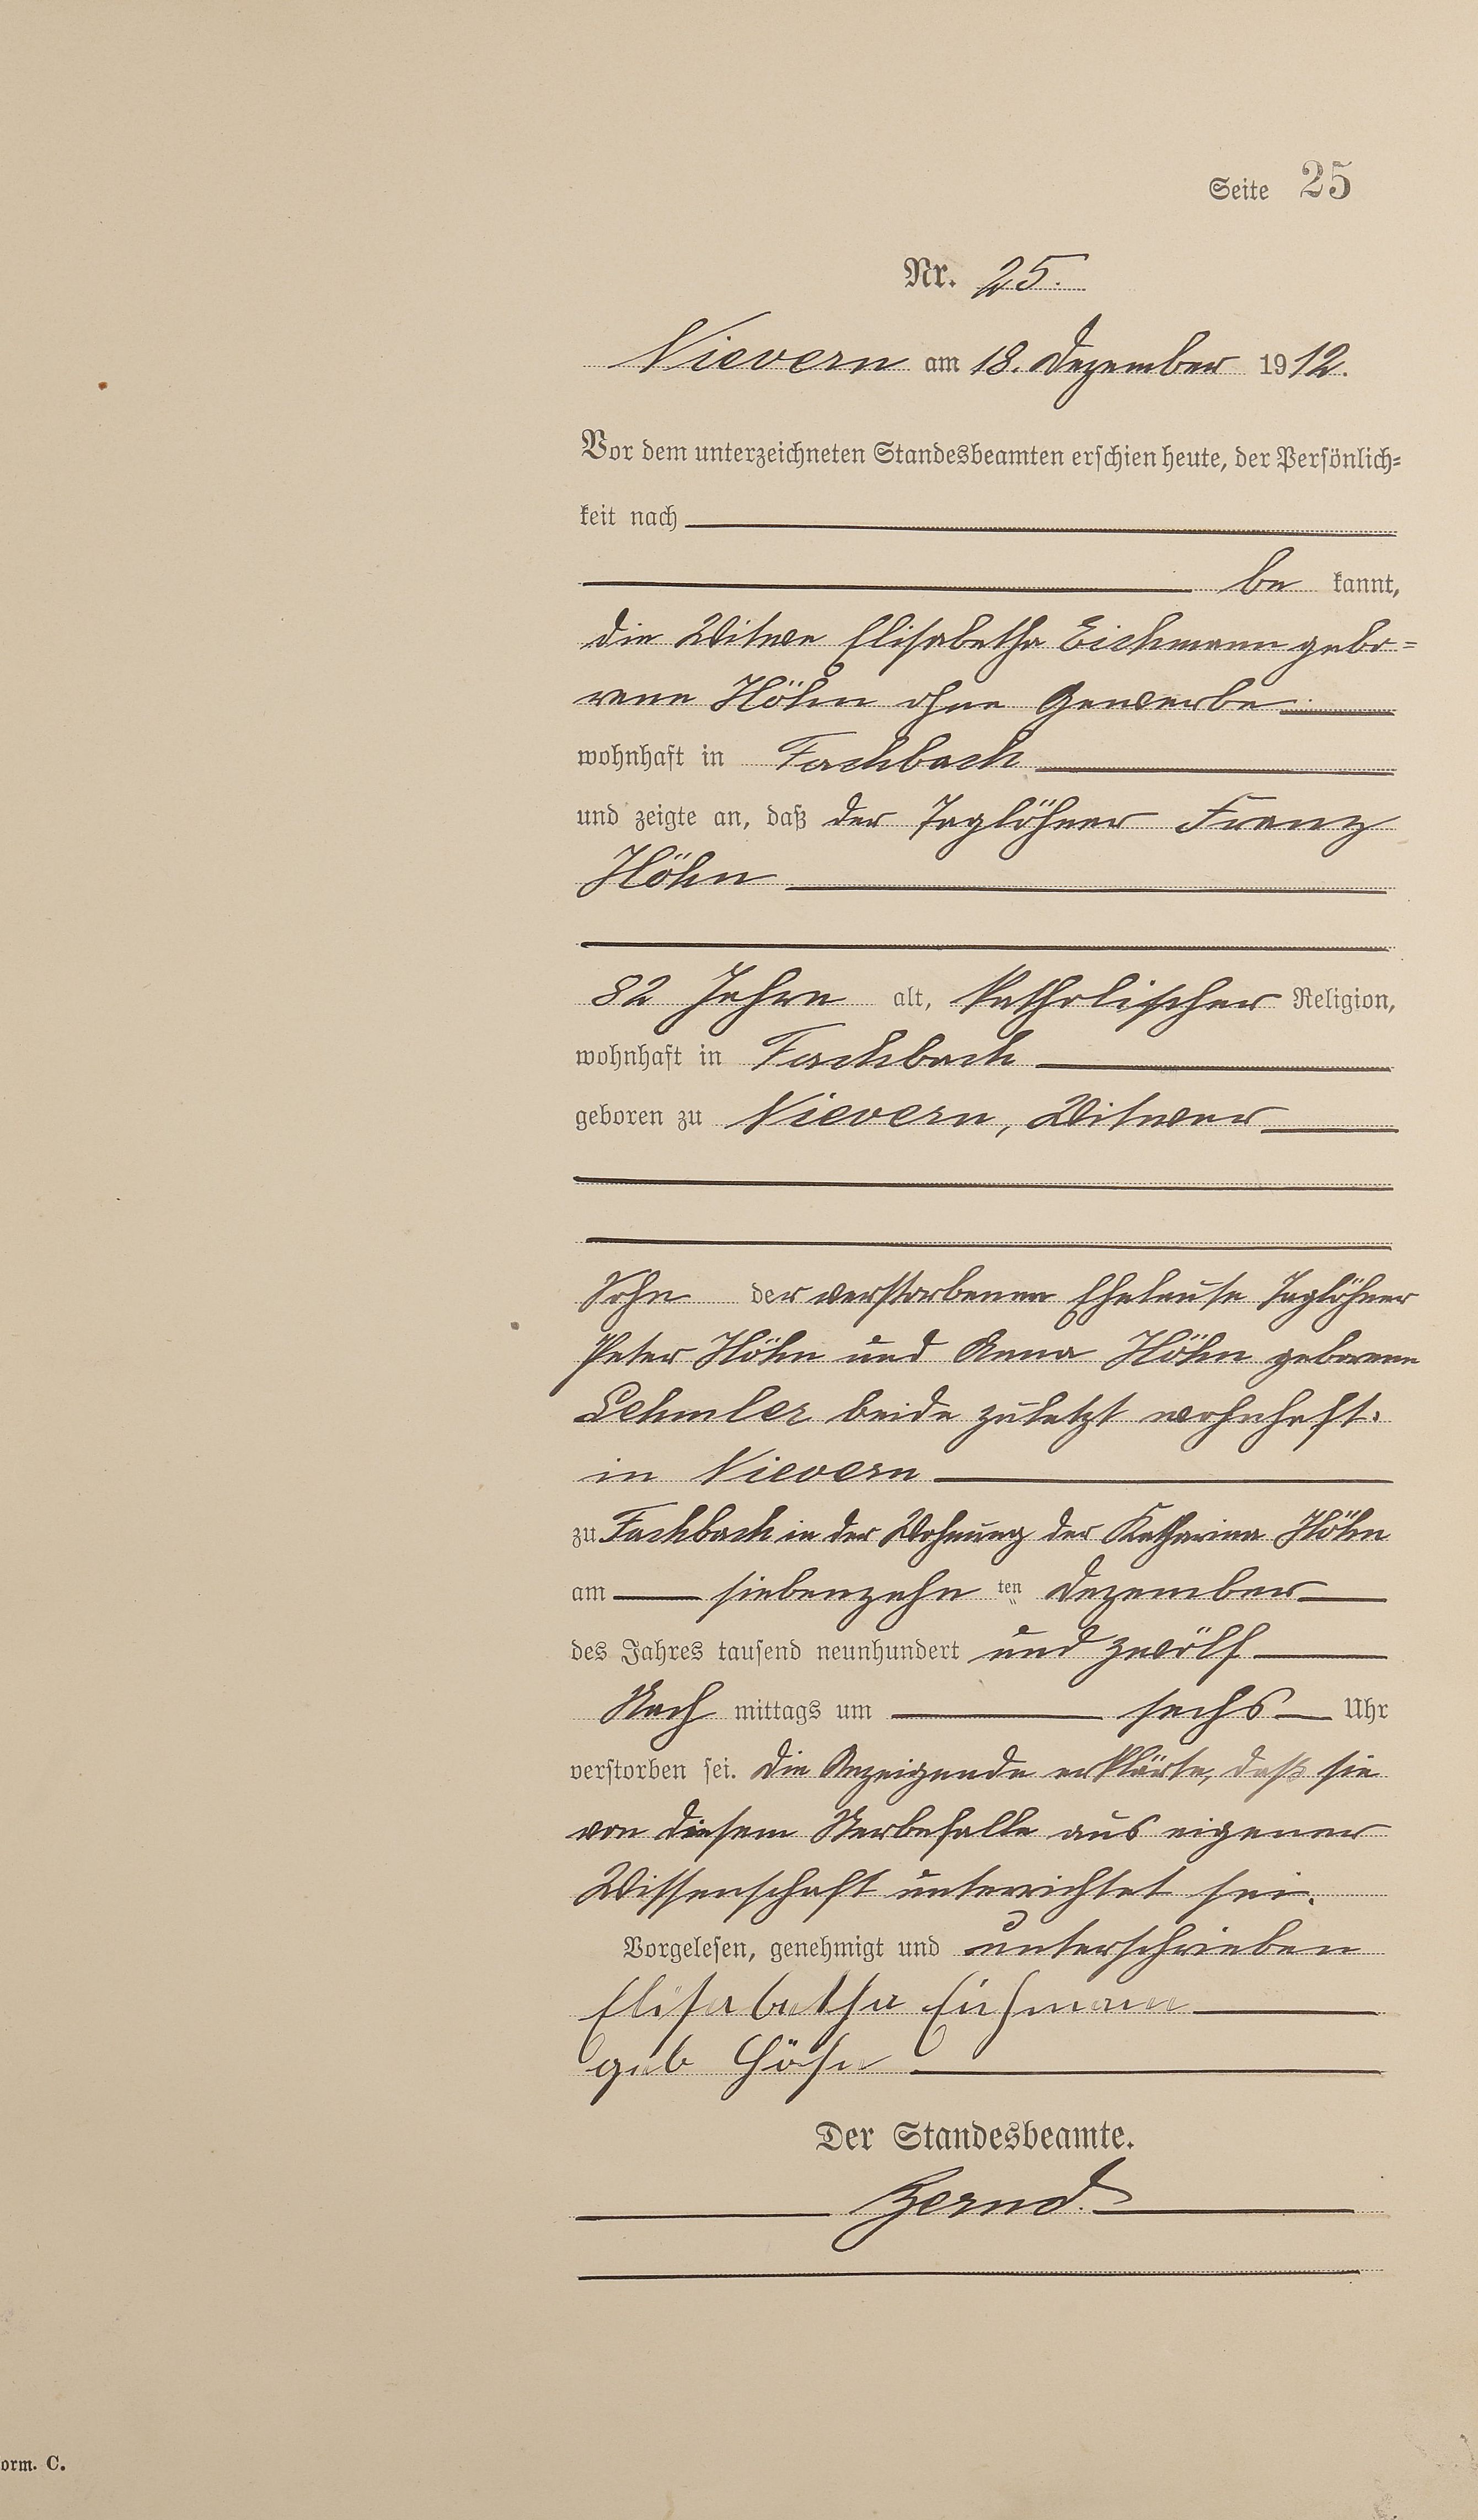 Seite 25
Nr. 25.
Nievern am 18. Dezember 1912.
Vor dem unterzeichneten Standesbeamten erschien heute, der Persönlich=
keit nach
be kannt,
die Witwe Elisabetha Eichmann gebo=
rene Höhn ohne Gewerbe
wohnhaft in Fachbach
und zeigte an, daß der Taglöhner Franz
Höhn
82 Jahre alt, katholischer Religion,
wohnhaft in Fachbach
geboren zu Nievern, Witwer
Sohn der verstorbenen Eheleute Taglöhner
Peter Höhn und Anna Höhn geborene
Lehmler beide zuletzt wohnhaft
in Nievern
zu Fachbach in der Wohnung der Katharina Höhn
am siebenzehn ten Dezember
des Jahres tausend neunhundert und zwölf
Nach mittags um sechs Uhr
verstorben sei. Die Anzeigende erklärte, daß sie
von diesem Sterbefalle aus eigener
Wissenschaft unterrichtet sei.
Vorgelesen, genehmigt und unterschrieben
Elisabetha Eichmann
geb Höhn
Der Standesbeamte.
orm. C.